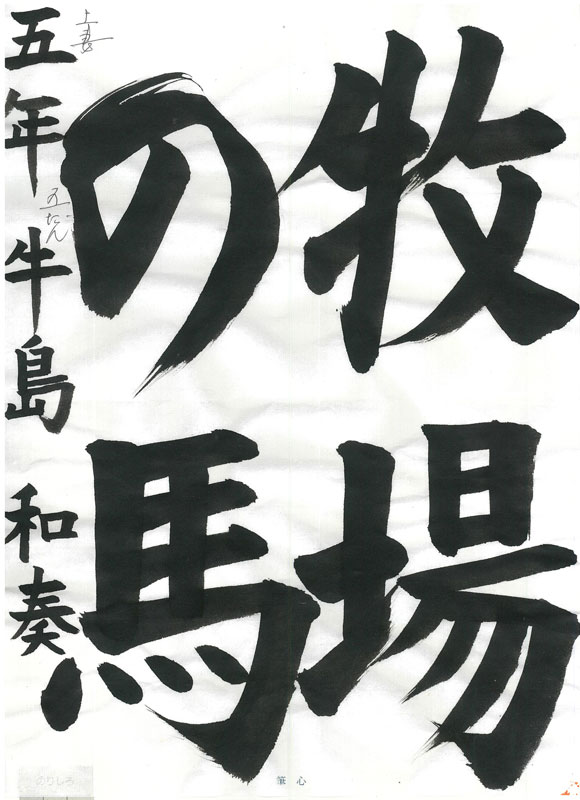 牧場
の馬
五年 牛島 和奏
上妻
五だん
のりしろ
筆心